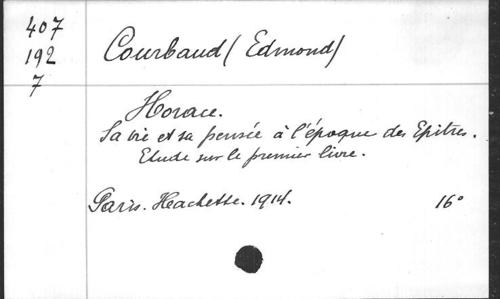 407
192
7
Courbaud (Edmond)
Horace.
Sa vie et sa pensée à l'époque des Epitres.
Etude sur le premier livre.
Paris. Hachette. 1914. 16°